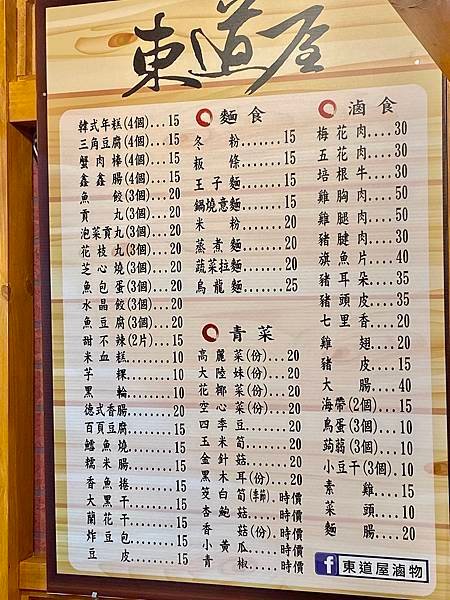 東道屋
韓式年糕(4個)...15
三角豆腐(4個)...15
蟹肉棒(4個)...15
鑫鑫腸(4個)...15
魚餃(3個)...20
貢丸(3個)...20
泡菜貢丸(3個)...20
花枝丸(3個)...20
芝心燒(3個)...20
魚包蛋(3個)...20
水晶餃(3個)...20
魚豆腐(3個)...20
甜不辣(2片)...15
米血糕.......10
芋粿.......10
黑輪.......10
德式香腸.......20
百頁豆腐.......15
鱈魚燒.......15
糯米腸.......15
香魚捲.......15
大黑干.......15
蘭花干.......15
炸豆包.......15
豆皮.......15
麵食
冬粉.......15
粄條.......15
王子麵.......15
鍋燒意麵.......15
米粉.......20
蒸煮麵.......20
蔬菜拉麵.......20
烏龍麵.......25
青菜
高麗菜(份)...20
大陸妹(份)...20
花椰菜(份)...20
空心菜(份)...20
四季豆.......20
玉米筍.......20
金針菇.......20
黑木耳(份)...20
茭白筍(季節).時價
杏鮑菇....時價
香菇(份).時價
小黃瓜....時價
青椒....時價
滷食
梅花肉....30
五花肉....30
培根牛....30
雞胸肉....50
雞腿肉....50
豬腱肉....30
旗魚片....40
豬耳朵....35
豬頭皮....35
七里香....20
雞翅....20
豬皮....15
大腸....40
海帶(2個)...15
鳥蛋(3個)...10
蒟蒻(3個).10
小豆干(3個).10
素雞....15
菜頭....10
麵腸....20
f 東道屋滷物